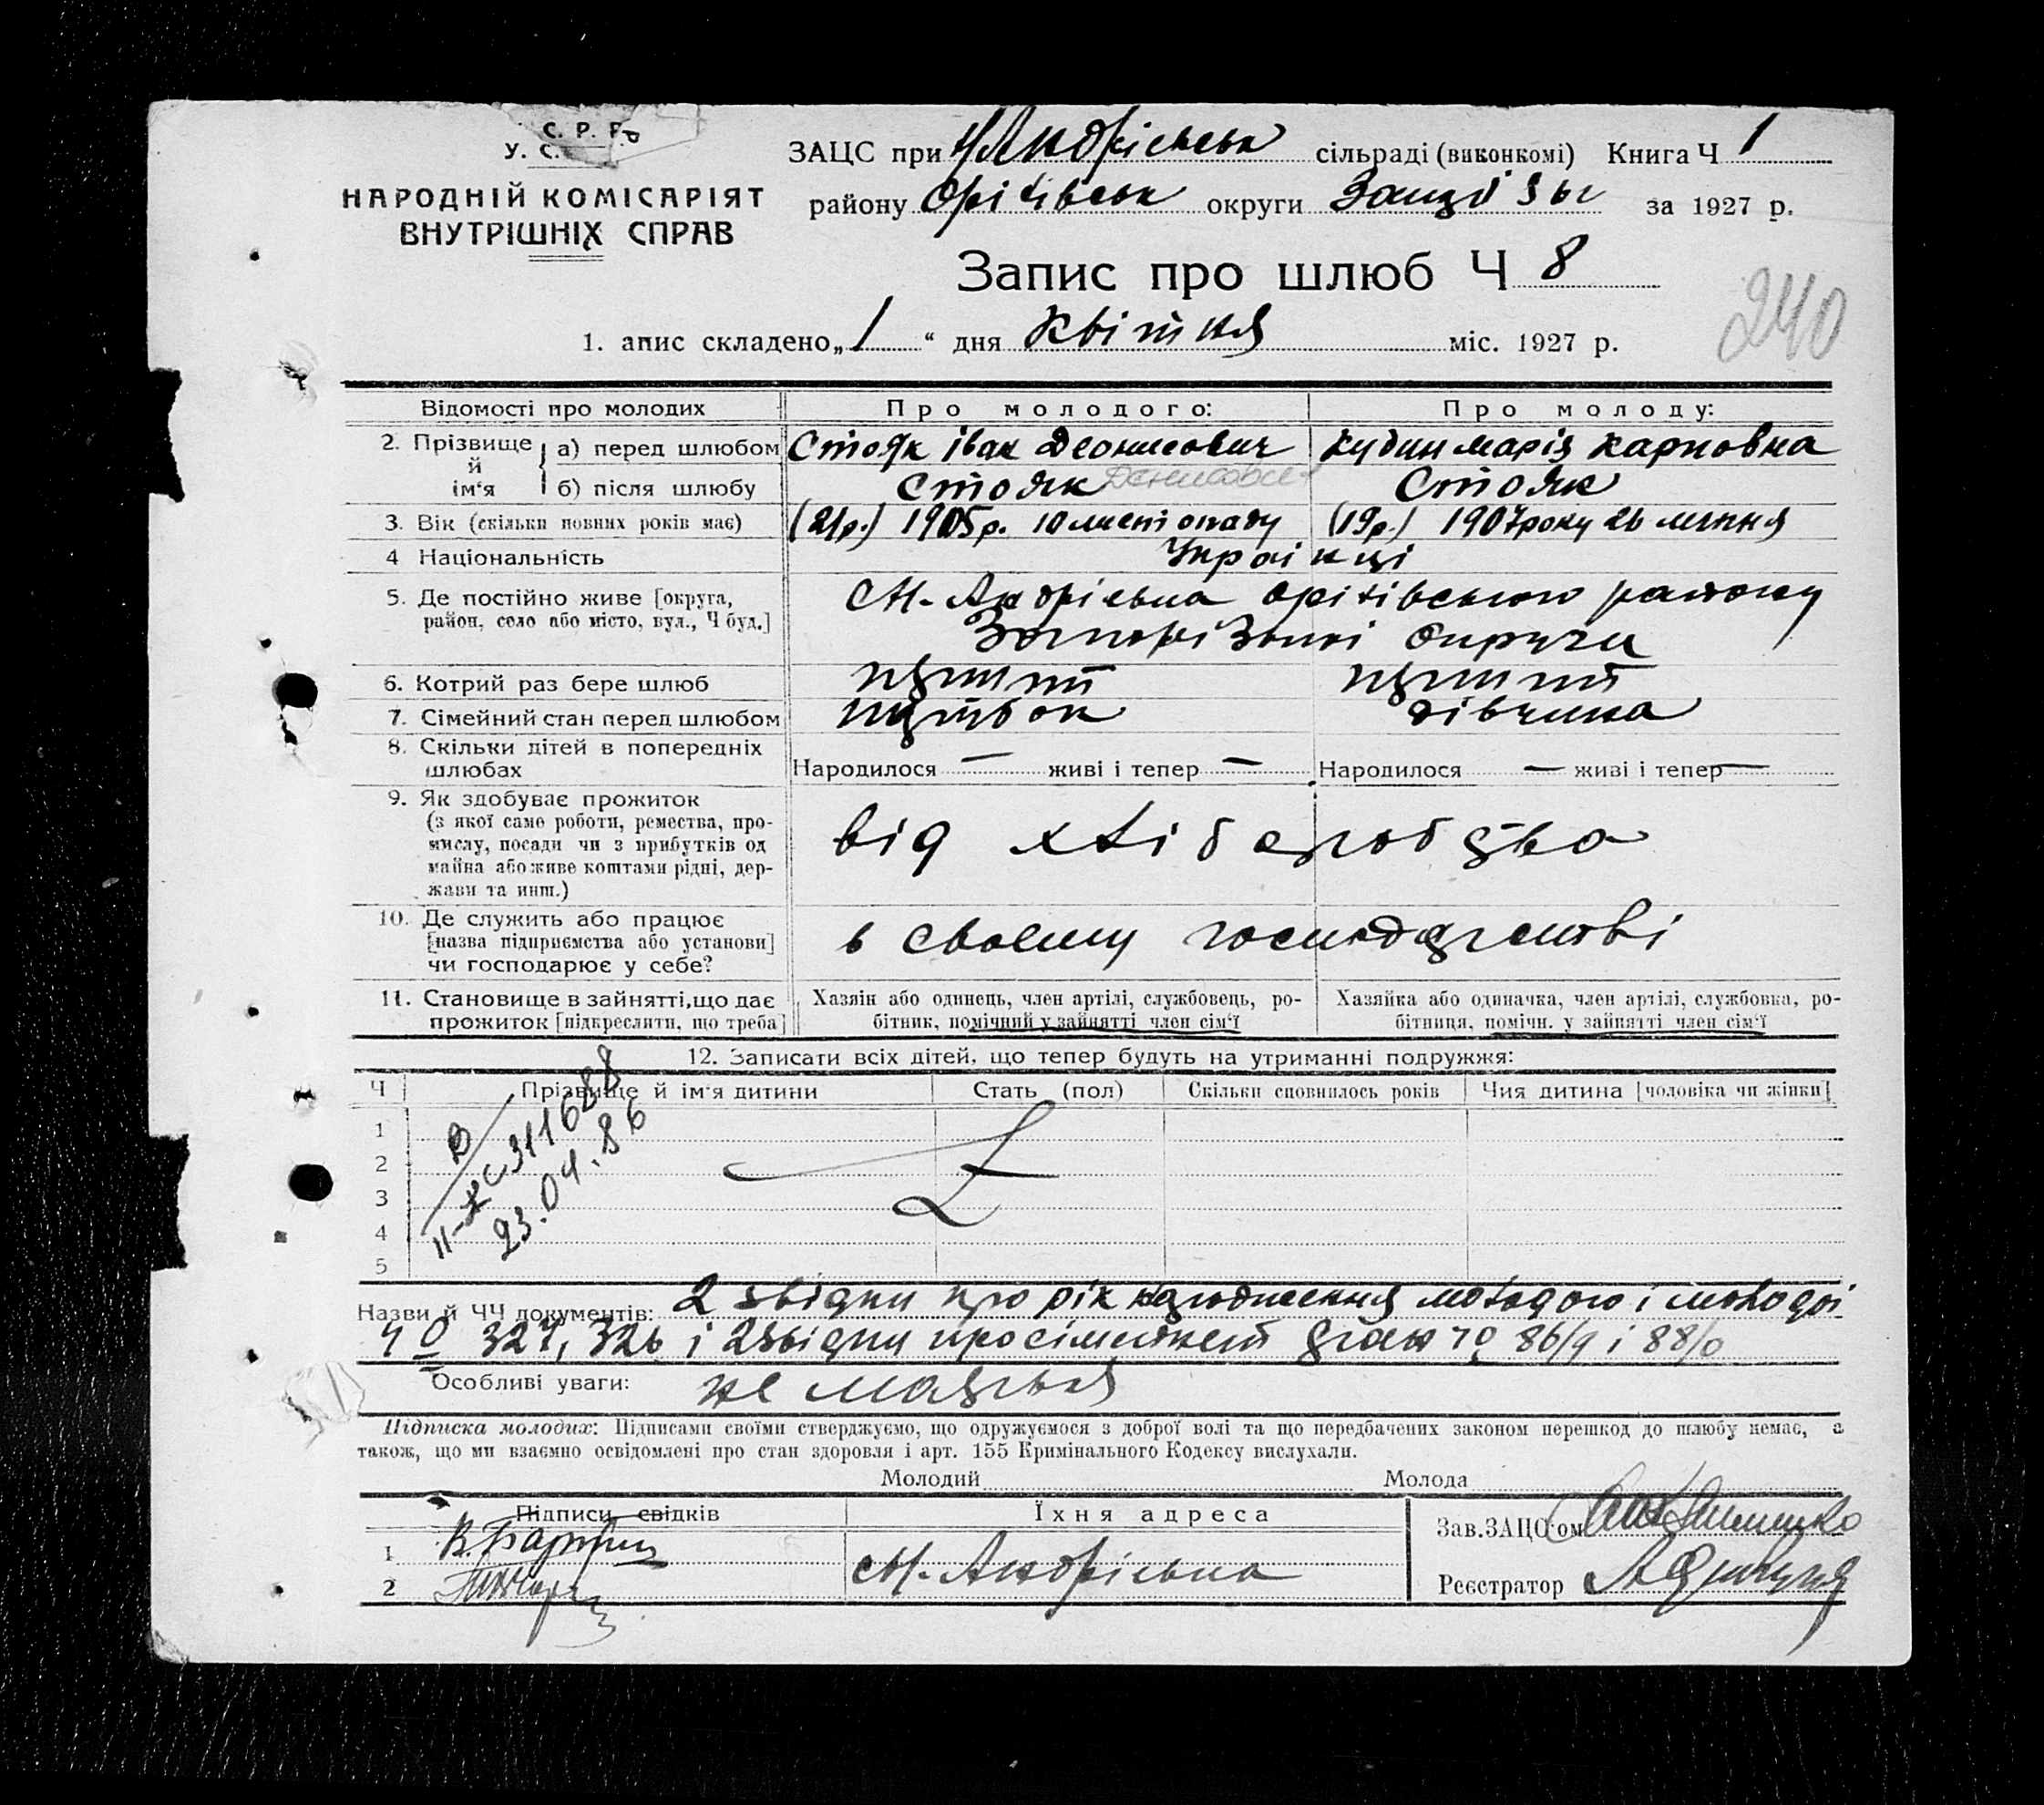 У. С. С. Р. Р.
НАРОДНІЙ КОМІСАРІЯТ
ВНУТРІШНІХ СПРАВ
ЗАЦС при Андрієвськ сільраді (виконкомі) Книга Ч 1
району Оріхівськ округи за 1927 р.
Запис про шлюб Ч 8
240
1. апис складено „1“ дня Квітня міс. 1927 р.
Відомості про молодих Про молодого: Про молоду:
2. Прізвище й ім‘я а) перед шлюбом Стояк Іван Деонисович Кудин Марія Карповна
б) після шлюбу Стояк Денисович Стояк
3. Вік (скільки повних років має) (21р.) 1905р. 10 листопаду (19р.) 1907року 26 липня
4 Національність Українці
5. Де постійно живе [округа, район, село або місто, вул., Ч буд.] М-Андрієвка Оріхівського району
Запорізької Округи
6. Котрий раз бере шлюб перший перший
7. Сімейний стан перед шлюбом парубок дівчина
8. Скільки дітей в попередніх шлюбах Народилося — живі і тепер — Народилося — живі і тепер —
9. Як здобуває прожиток
(з якої саме роботи, ремества, про-
мислу, посади чи з прибутків од
майна або живе коштами рідні, дер-
жави та инш.)
від хліборобства
10. Де служить або працює
[назва підприємства або установи]
чи господарює у себе?
в своему господарстві
11. Становище в зайнятті, що дає
прожиток [підкреслити, що треба]
Хазяін або одинець, член артілі, службовець, ро-
бітник, помічний у зайнятті член сім‘ї
Хазяйка або одиначка, член артілі, службовка, ро-
бітниця, помічн. у зайнятті член сім‘ї
12. Записати всіх дітей, що тепер будуть на утриманні подружжя:
Ч Прізвище й ім‘я дитини Стать (пол) Скільки сповнилось років Чия дитина [чоловіка чи жінки]
1
2
3
4
5
311688
23.04.86
Назви й ЧЧ документів: 2 звідки про рік народження молодого і молодої
327, 326 і 2 звідки про сімейний 86/9 і 88/0
Особливі уваги: не мається
Підписка молодих: Підписами своїми стверджуємо, що одружуємося з доброї волі та що передбачених законом перешкод до шлюбу немає, а
також, що ми взаємно освідомлені про стан здоровля і арт. 155 Кримінального Кодексу вислухали.
Молодий Молода
Підписи свідків Їхня адреса
1
2 М-Андрієвка
Зав. ЗАЦС‘ом
Реєстратор